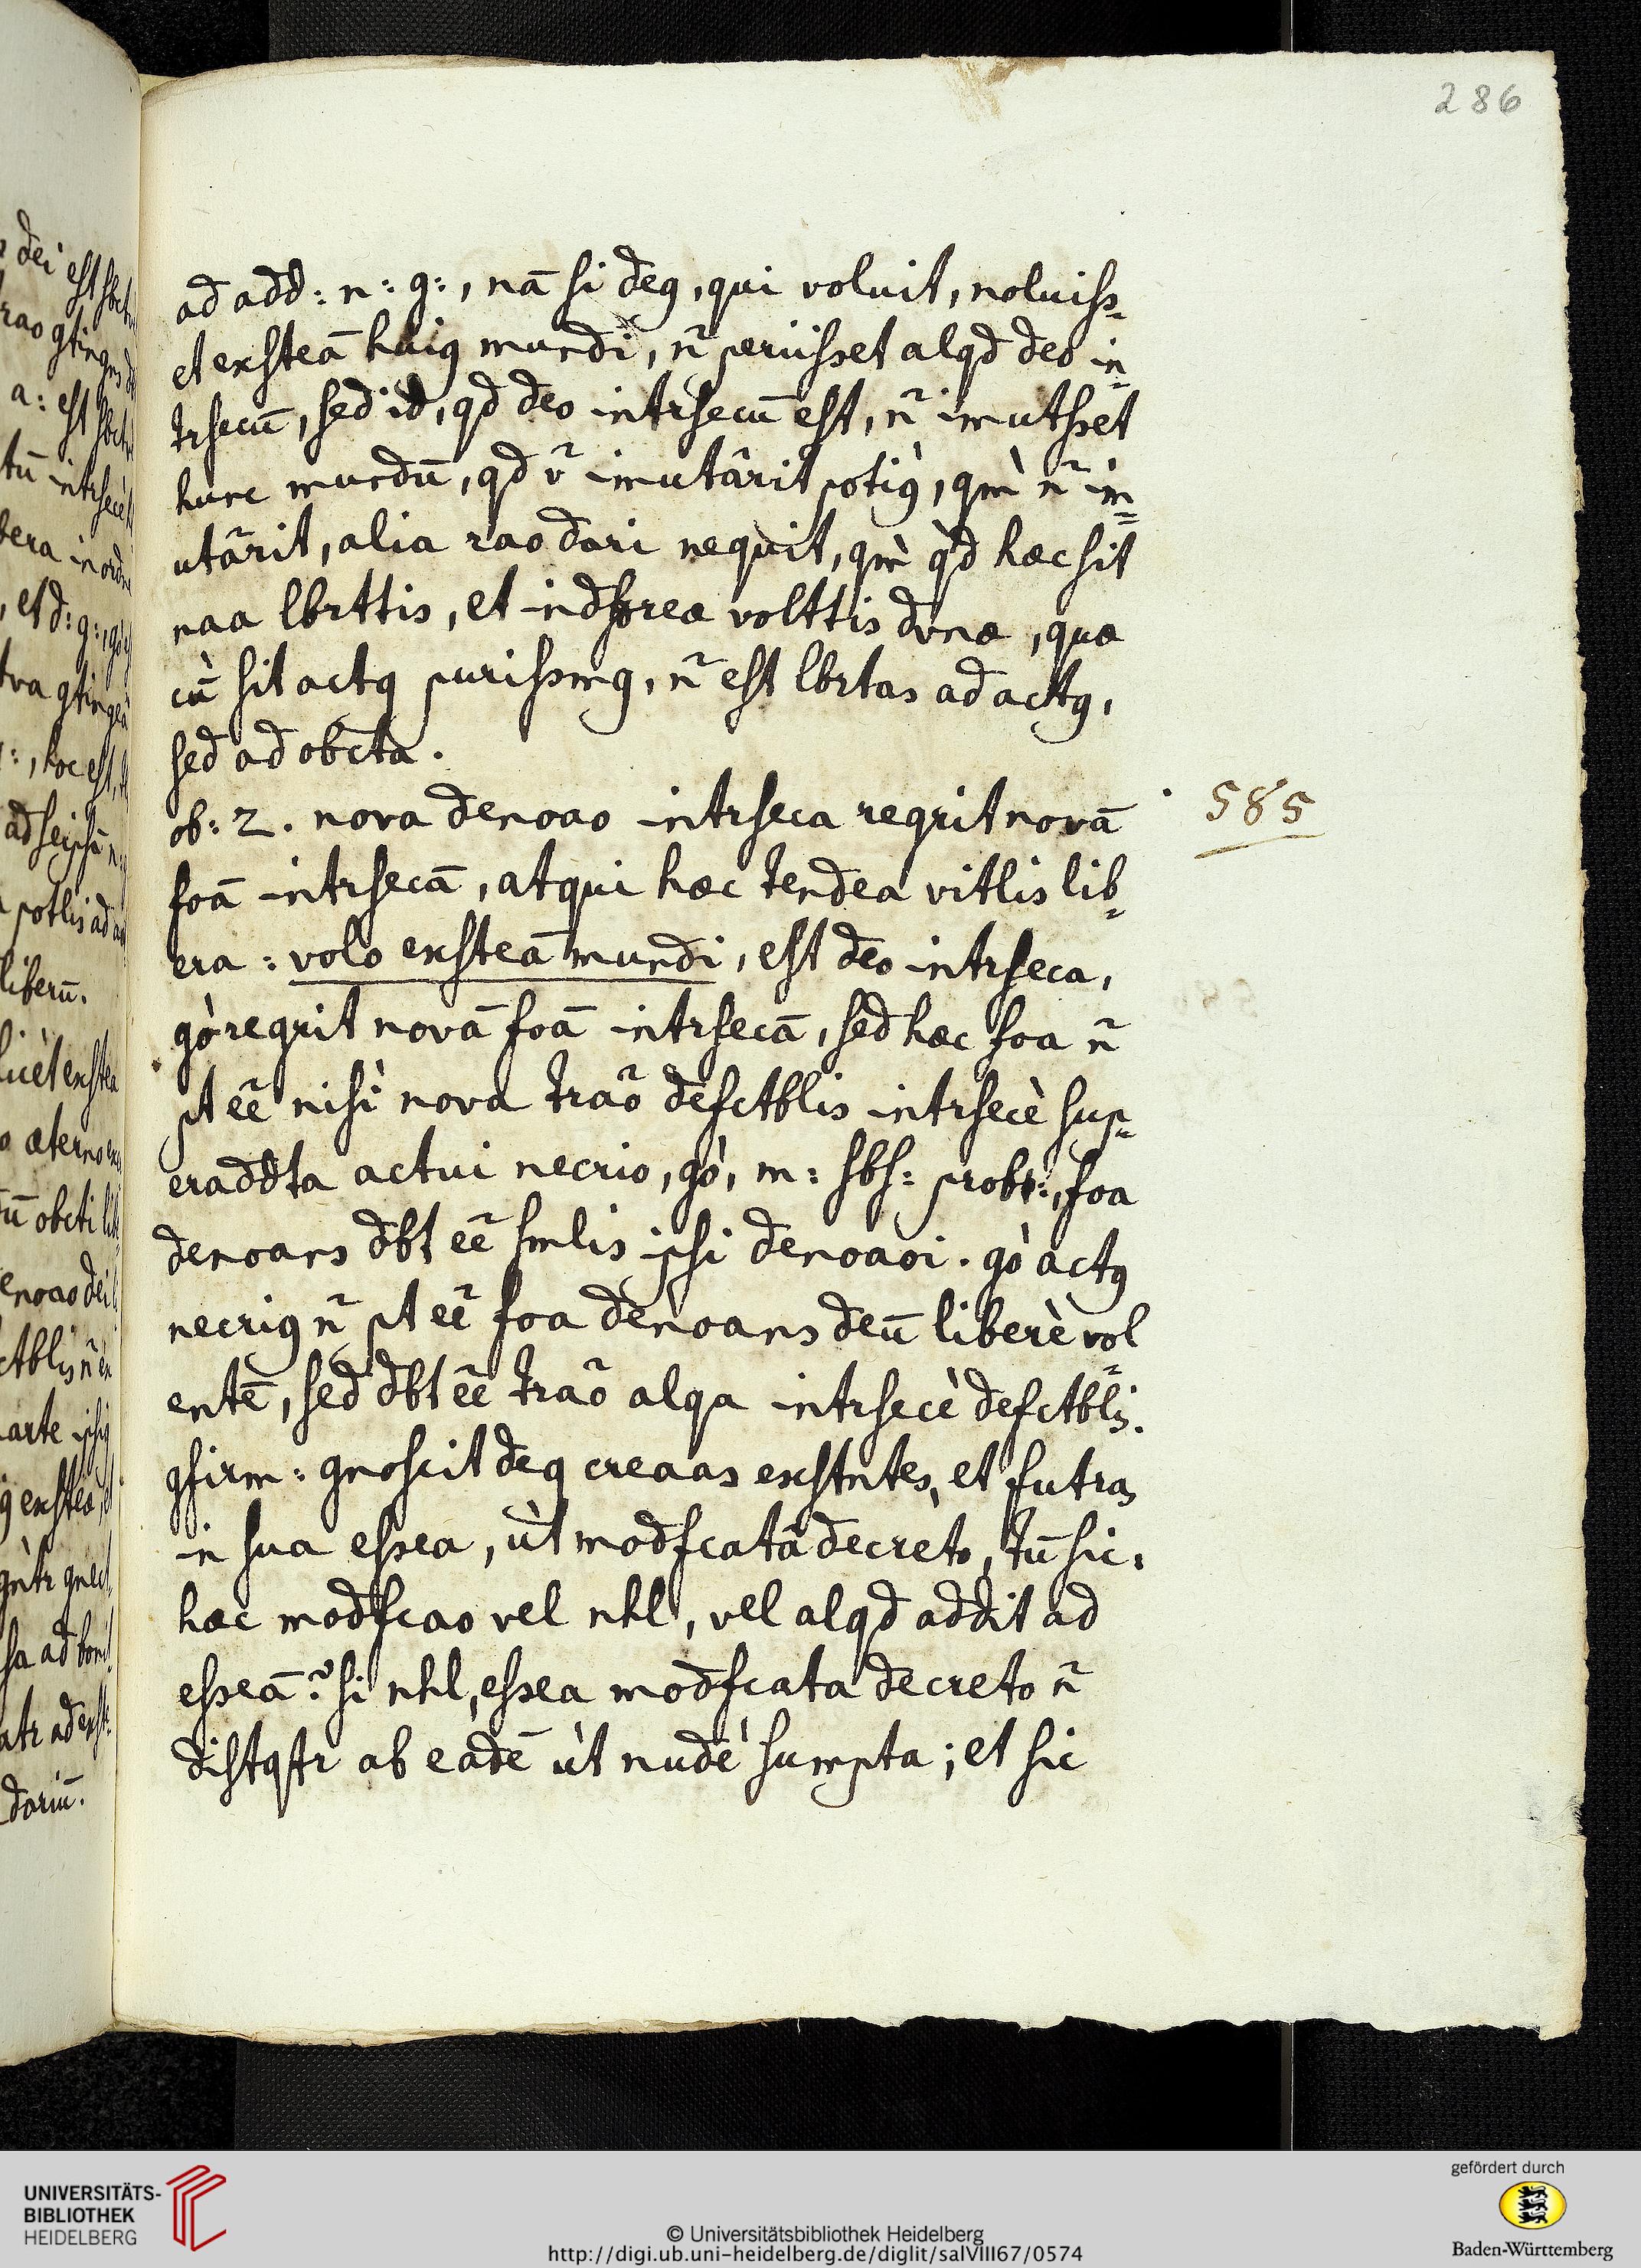 286
ad add: n: g:, nā si deg, qui voluit, noluiss=
et exsteā huig mundi, n̄ periisset alqd deo in=
trsecū, sed id, qd deo intrsecū est, n̄ imutsset
hunc mundū, qd v̄ imutârit potig, qm̀ n̄ im=
utârit, alia rao dari nequit, qm̀ qd hæc sit
naa lbrttis, et indffrea volttis dvnæ, quæ
cù sit actg purissmg, n̄ est lbrtas ad actg,
sed ad obcta.
ob: 2. nova denoao intrseca reqrit novā
585
foā intrsecā, atqui hæc tendea vitlis lib=
era: volo exsteā mundi, est deo intrseca,
gò reqrit novā foā intrsecā, sed hæc foa n̄
pt eē nisi nova traō defctblis intrsecè sup=
eraddta actui necrio, gò, m: sbs: probr:, foa
denoans dbt eē smlis ipsi denoaoi. gò actg
necrig n̄ pt eē foa denoans deū liberè vol=
entē, sed dbt eē traō alqa intrsecè defctblis.
gfirm: gnoscit deg creaas exstntes, et futras
in sua essea, ùt modfcatâ decreto, tū sic:
hæc modfcao vel nhl, vel alqd addit ad
esseā? si nhl, essea modfcata decreto n̄
distqtr ab eadē ùt nudè sumpta; et sic
dei est
a: est
et d: g:,
hoc est,
liberū.
æterno
obcti
arte
dariū.
UNIVERSITÄTS-
BIBLIOTHEK
HEIDELBERG
© Universitätsbibliothek Heidelberg
http://digi.ub.uni-heidelberg.de/diglit/salVIII67/0574
gefördert durch
Baden-Württemberg